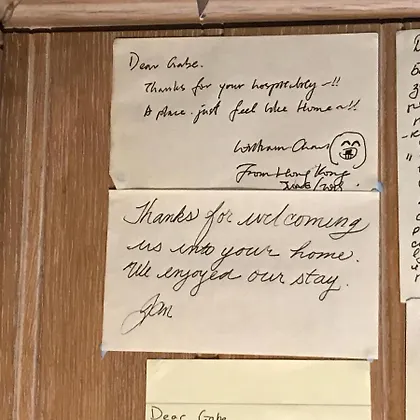 Dear Gabe.
Thanks for your hospitality -!!
A place. just feel like Home ~!!
From Hong Kong
Thanks for welcoming
us into your home.
We enjoyed our stay.
Jan
Dear Gabe